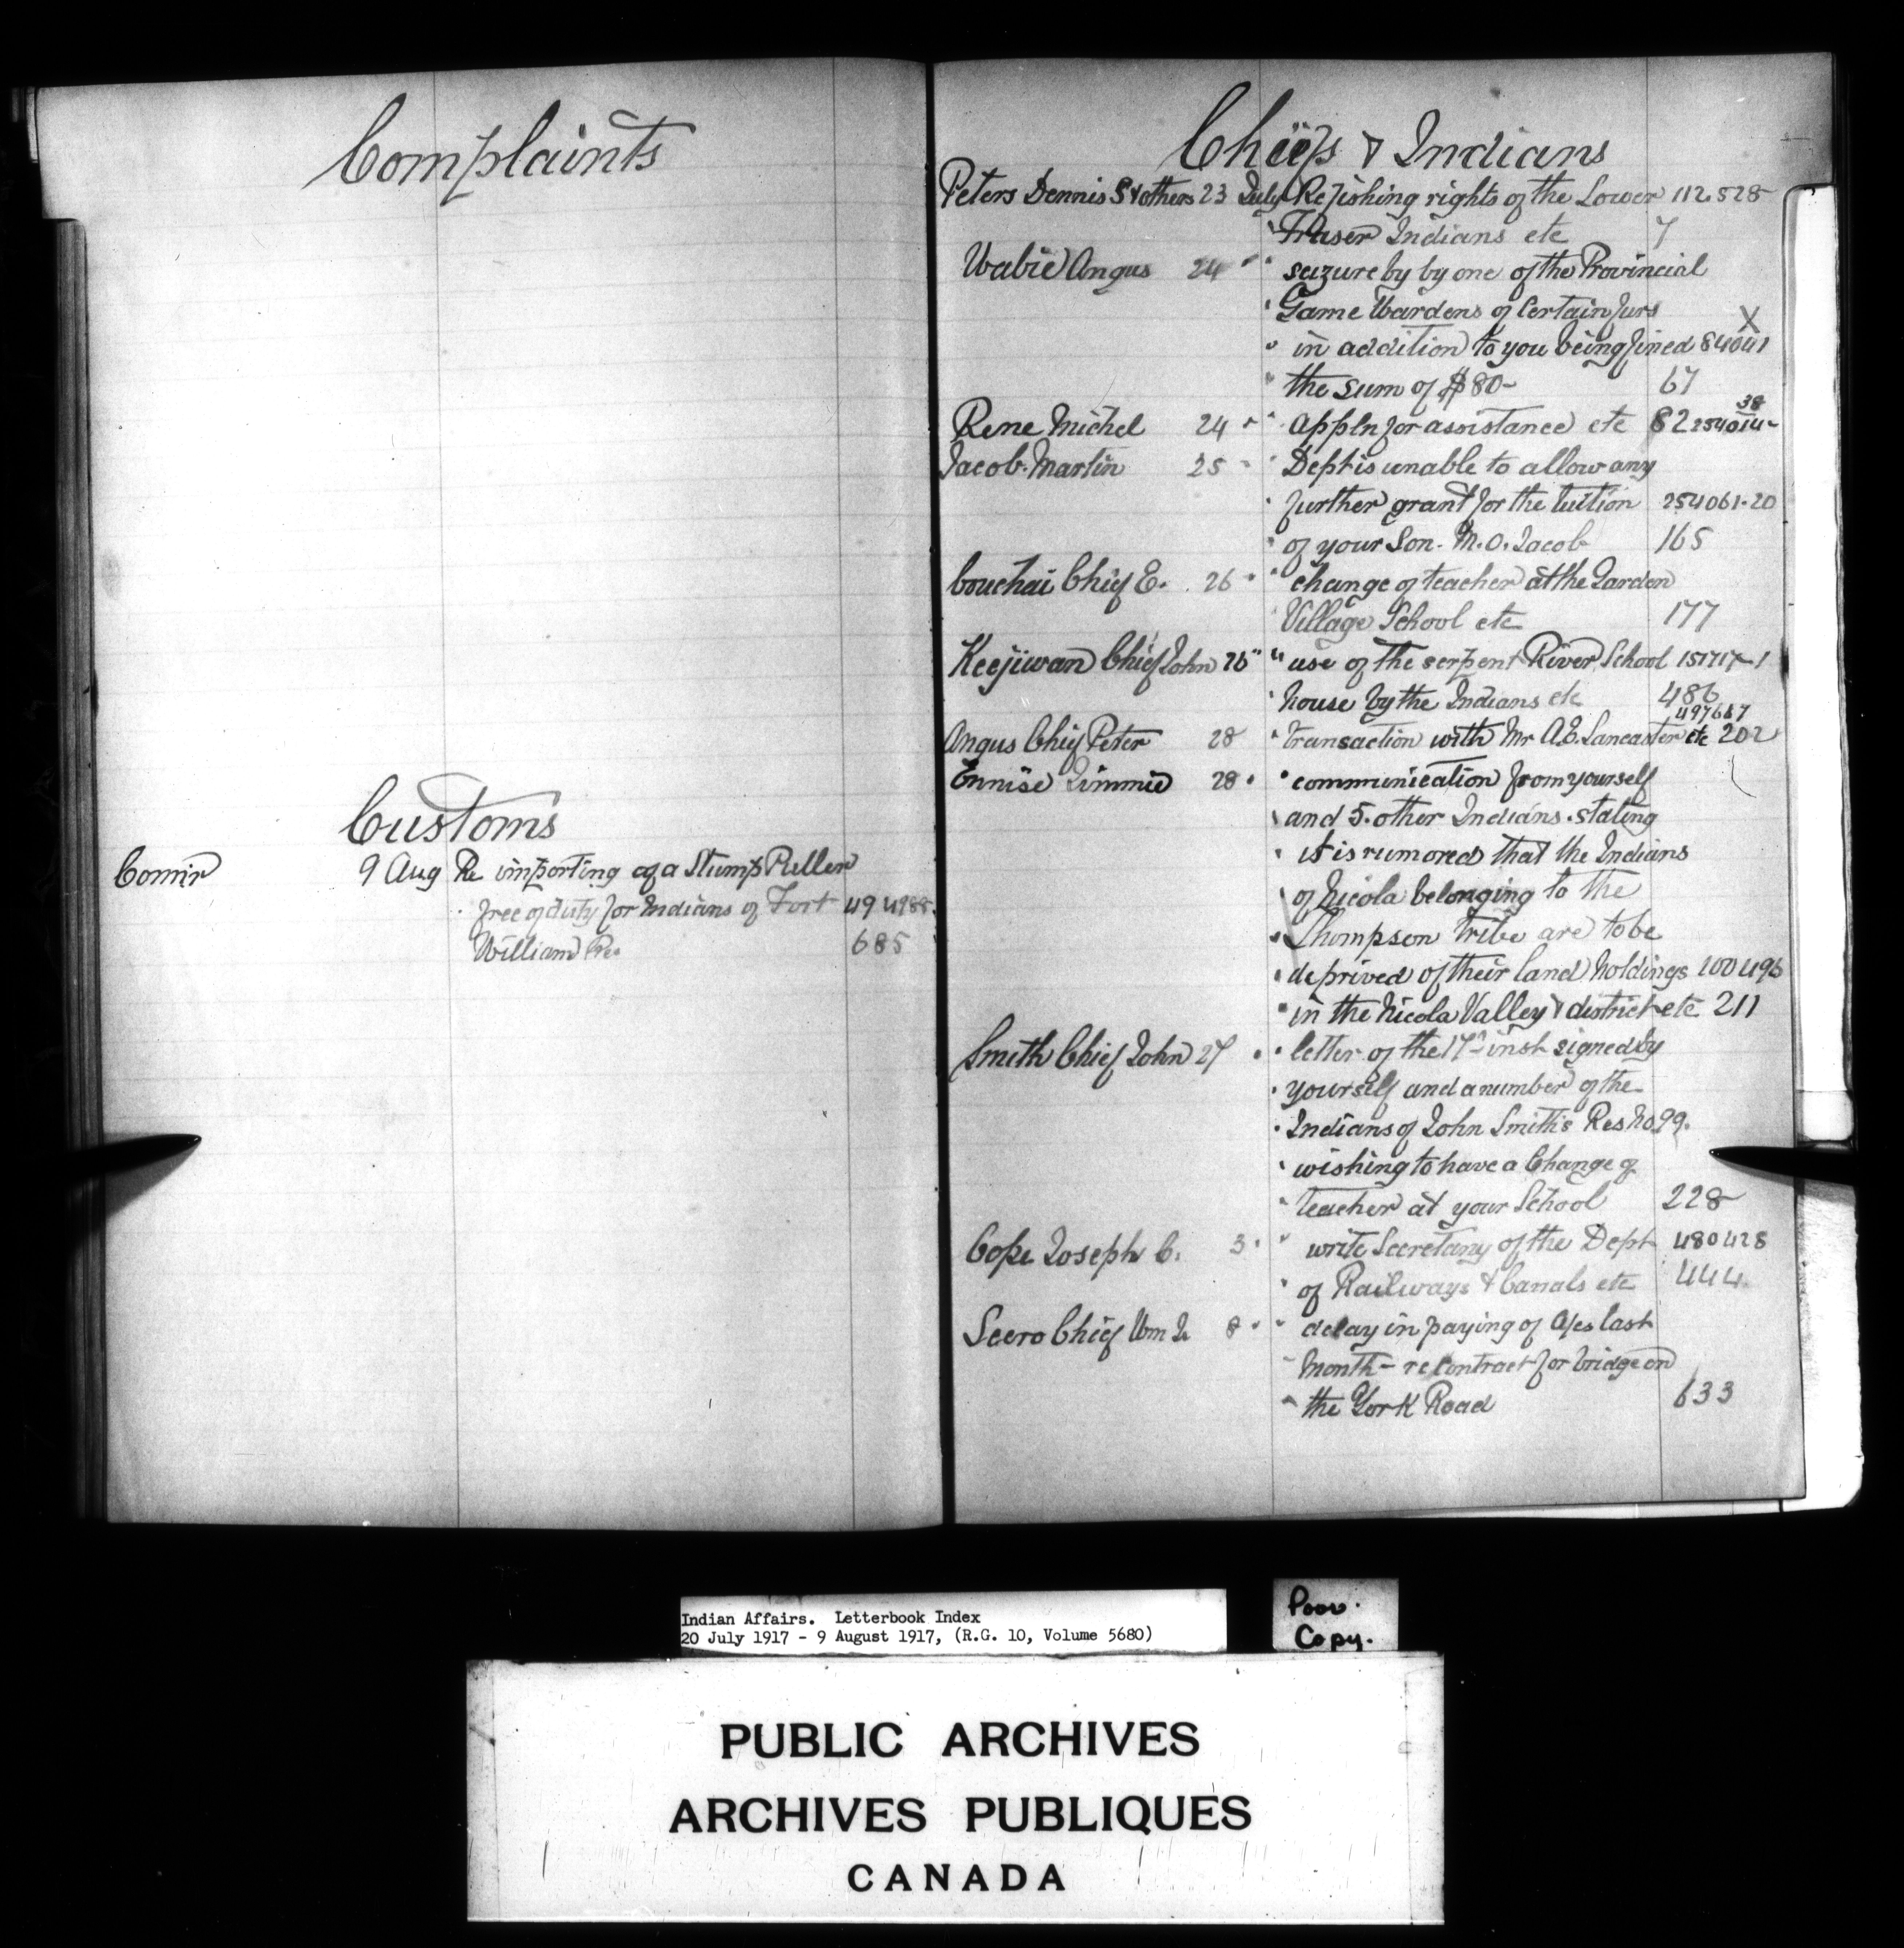 Complaints
Customs
Comir 9 Aug Re importing of a Stump Puller
free of duty for Indians of Fort 494988
William Res 685
Chiefs & Indians
Peters Dennis S & others 23 July Re fishing rights of the Lower 112528
Fraser Indians etc 7
Wabie Angus 24 " " seizure by by one of the Provincial
" Game Wardens of Certain furs X
" in addition to you being fined 84041
" the sum of $80- 67
Rene Michel 24 " " appln for assistance etc 82 254014-38
Jacob. Martin 25 " " Dept is unable to allow any
" further grant for the tuition 254061-20
" of your Son. M.O. Jacob 165
Couchai Chief E. 26 " " change of teacher at the Garden
" Village School etc 177
Keejiwan Chief John 26 " " use of the serpent River School 151717-1
" house by the Indians etc 486
497667
Angus Chief Peter 28 " transaction with Mr A.E. Lancaster etc 202
Ennise Jimmie 28 " " communication from yourself
" and 5. other Indians. stating
" it is rumored that the Indians
" of Nicola belonging to the
" Thompson Tribe are to be
" deprived of their land holdings 100496
" in the Nicola Valley & district etc 211
Smith Chief John 27 " " letter of the 17th inst signed by
" yourself and a number of the
" Indians of John Smith's Res No 99.
" wishing to have a Change of
" teacher at your School 228
Cope Joseph C. 3 " " write Secretary of the Dept 480428
" of Railways & Canals etc 444
Seero Chief Wm J. 8 " " delay in paying of a/cs last
" Month - re contract for bridge on
" the York Road 633
Indian Affairs. Letterbook Index
20 July 1917 - 9 August 1917, (R.G. 10, Volume 5680)
Poor.
Copy.
PUBLIC ARCHIVES
ARCHIVES PUBLIQUES
CANADA